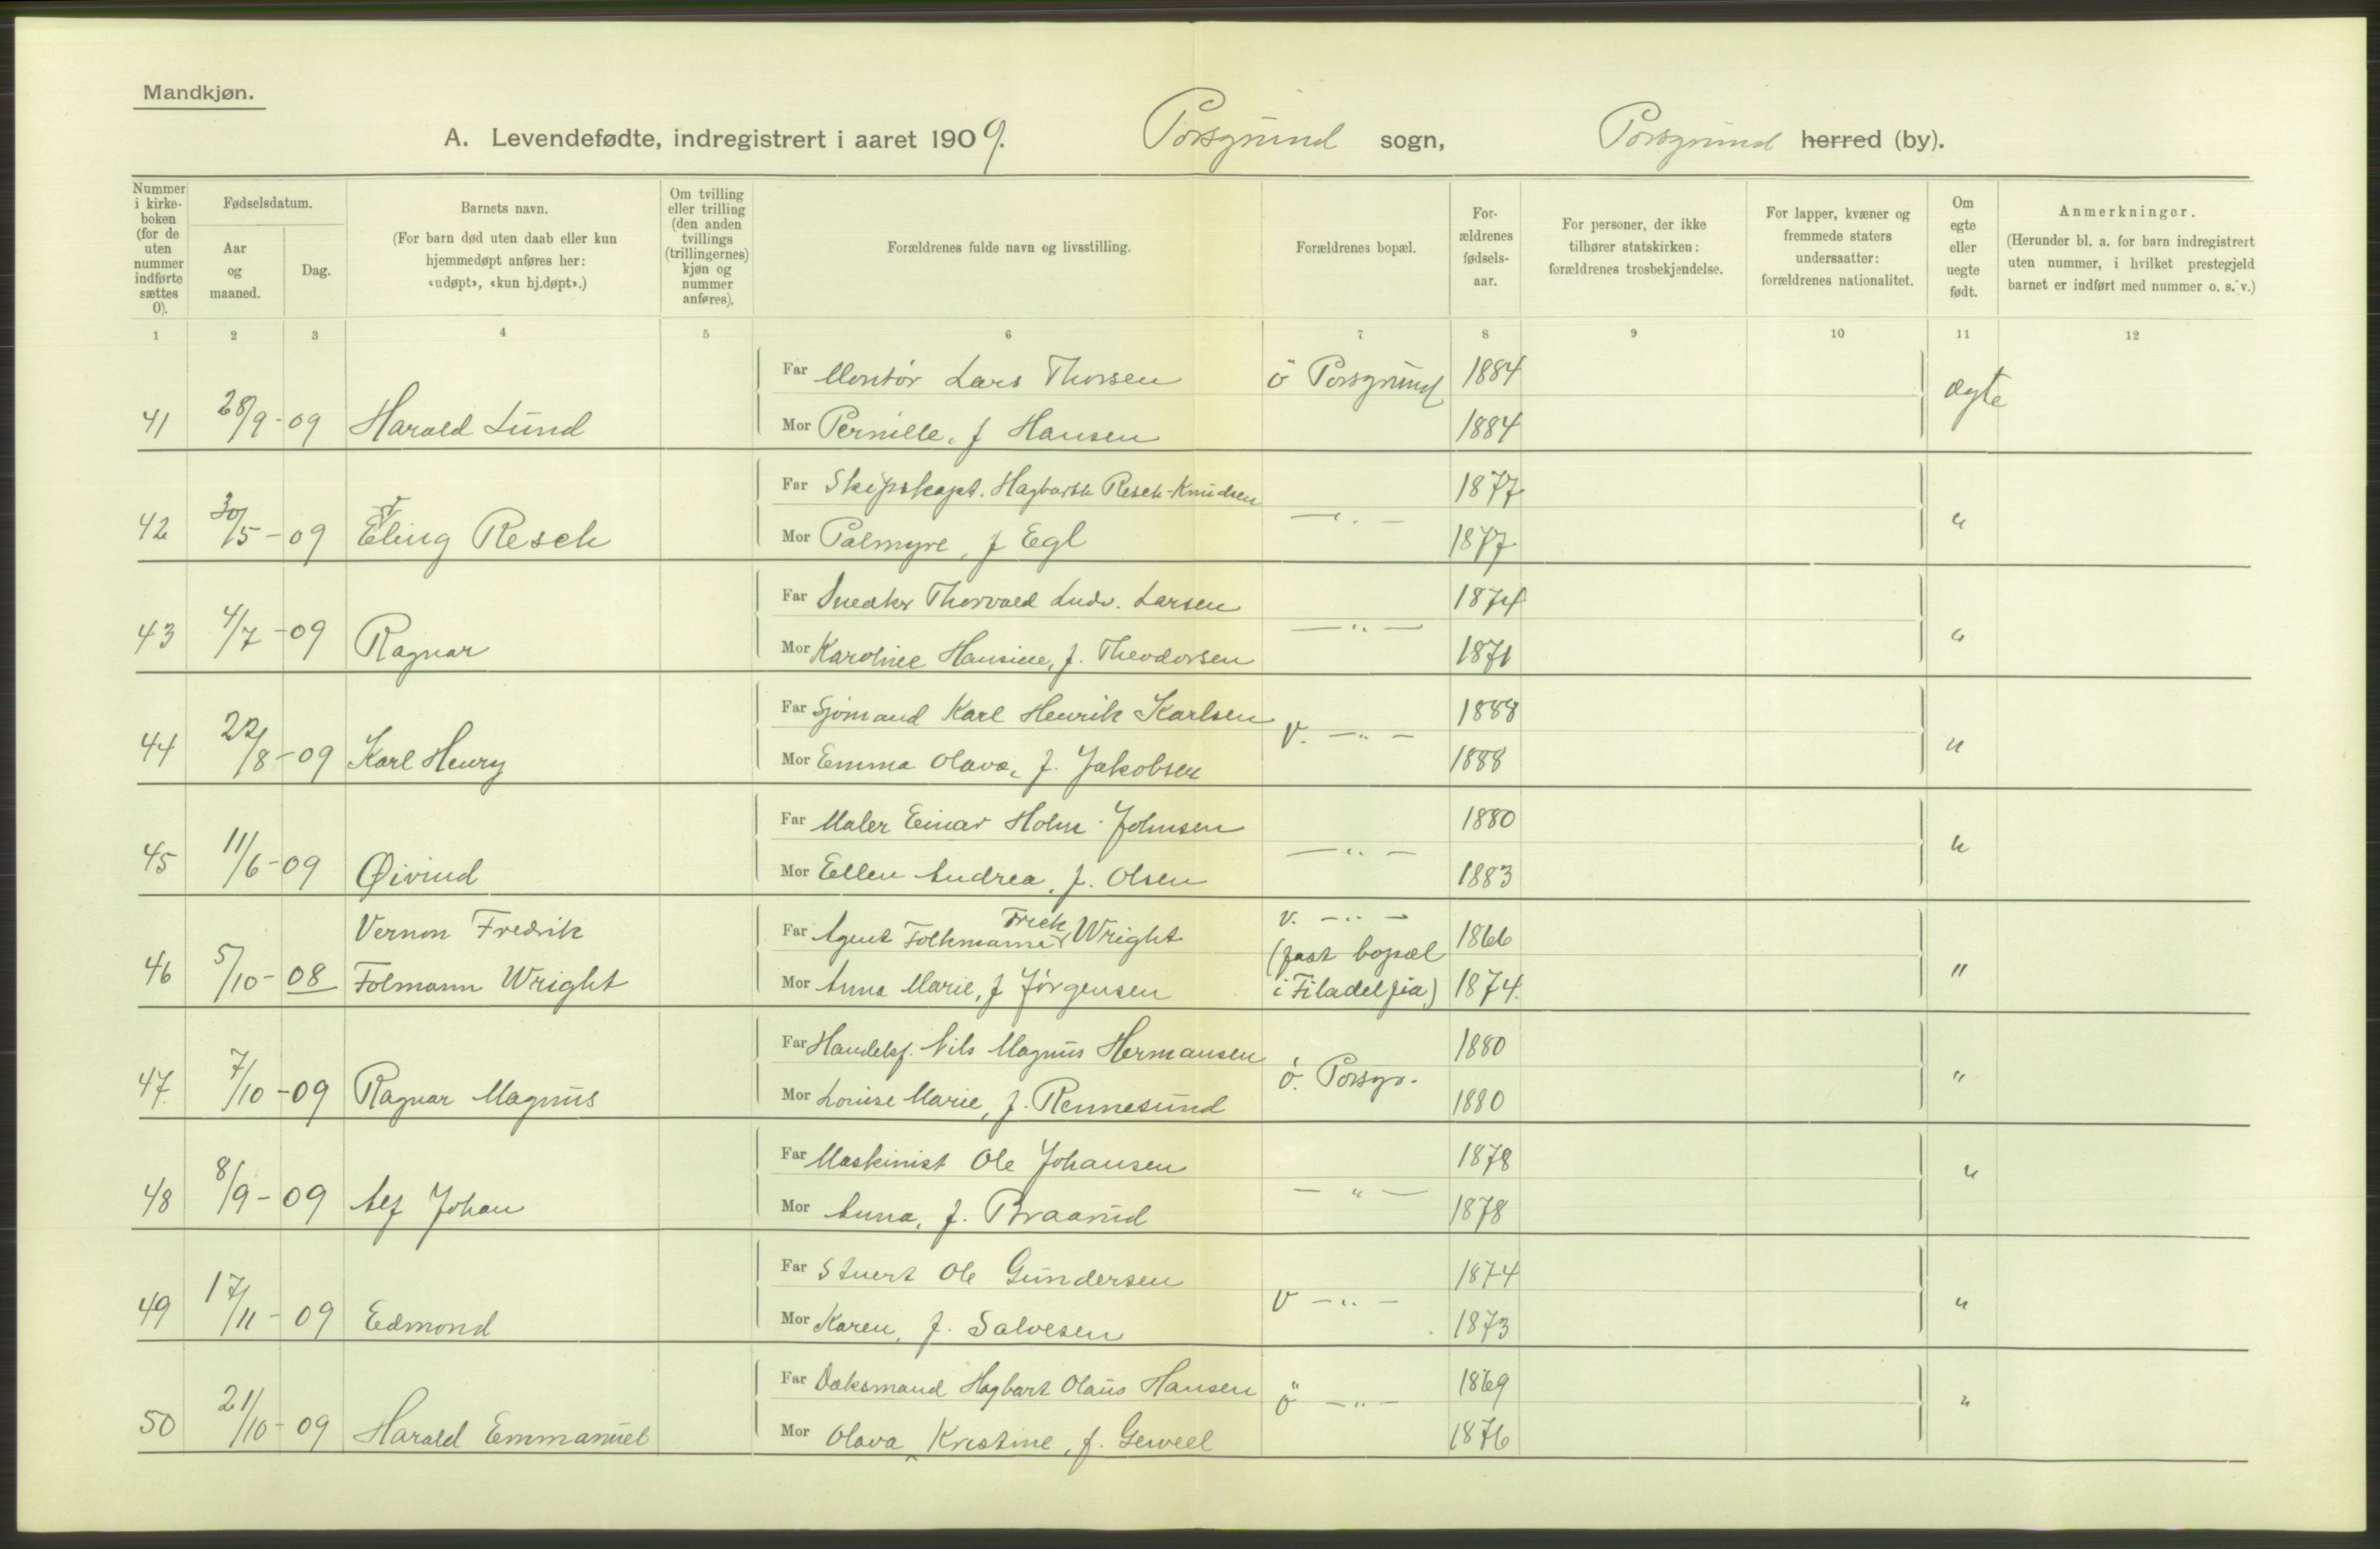 Mandkjøn.
A. Levendefødte, indregistrert i aaret 1909. Porsgrund sogn, Porsgrund herred (by).
Nummer i kirke-boken (for de uten nummer indførte sættes 0).
Fødselsdatum.
Aar og maaned.
Dag.
Barnets navn.
(For barn død uten daab eller kun hjemmedøpt anføres her: «udøpt», «kun hj.døpt».)
Om tvilling eller trilling (den anden tvillings (trillingernes) kjøn og nummer anføres).
Forældrenes fulde navn og livsstilling.
Forældrenes bopæl.
For-ældrenes fødsels-aar.
For personer, der ikke tilhører statskirken: forældrenes trosbekjendelse.
For lapper, kvæner og fremmede staters undersaatter: forældrenes nationalitet.
Om egte eller uegte født.
Anmerkninger.
(Herunder bl. a. for barn indregistrert uten nummer, i hvilket prestegjeld barnet er indført med nummer o. s. v.)
1 2 3 4 5 6 7 8 9 10 11 12
Far Montør Lars Thorsen ö Porsgrund 1884 ægte
41 28/9-09 Harald Lund Mor Pernille, f Hansen 1884
Far Skipskapt. Hagbarth Resch-Knudsen 1877
42 30/5-09 Eling Resch Mor Palmyre, f Egl 1877 —"— "
Far Snedker Thorvald Ludv. Larsen 1874
43 4/7-09 Ragnar Mor Karoline Hansine, f. Theodorsen 1871 —"— "
Far Sjömand Karl Henrik Karlsen 1888
44 22/8-09 Karl Henry Mor Emma Olava, f. Jakobsen 1888 V. —"— "
Far Maler Einar Holm-Johnsen 1880
45 11/6-09 Øivind Mor Ellen Andrea, f. Olsen 1883 —"— "
Vernon Fredrik Far Agent Folkmanner Frek Wright V. —"— 1866
46 5/10-08 Folmann Wright Mor Anna Marie, f Jörgensen (fast bopæl i Filadelfia) 1874. "
Far Handelsf. Nils Magnus Hermansen 1880
47. 7/10-09 Ragnar Magnus Mor Louise Marie, f. Rennesund ö. Porsgr. 1880 "
Far Maskinist Ole Johansen 1878
48 8/9-09 Alf Johan Mor Anna, f. Braarud —"— 1878 "
Far Stuert Ole Gundersen 1874
49 17/11-09 Edmond Mor Karen, f. Salvesen V —"— 1873 "
Far Dæksmand Hagbart Olaus Hansen ö —"— 1869
50 21/10-09 Harald Emmanuel Mor Olava Kristine, f. Gerveel 1876 "